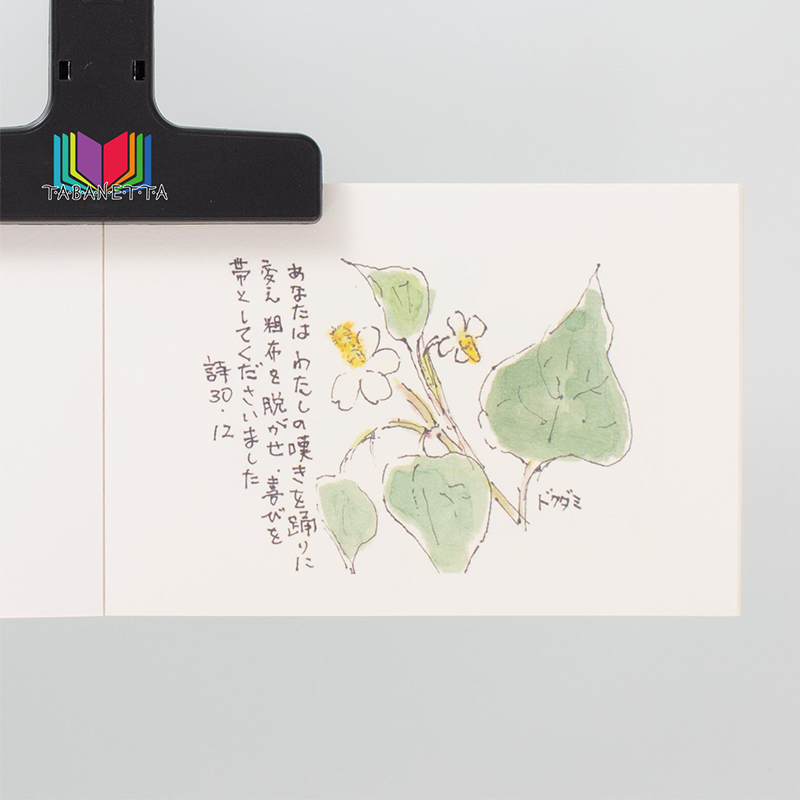 TABANETTA
あなたは わたしの嘆きを踊りに
変え 粗布を脱がせ、喜びを
帯としてくださいました
詩30・12
ドクダミ